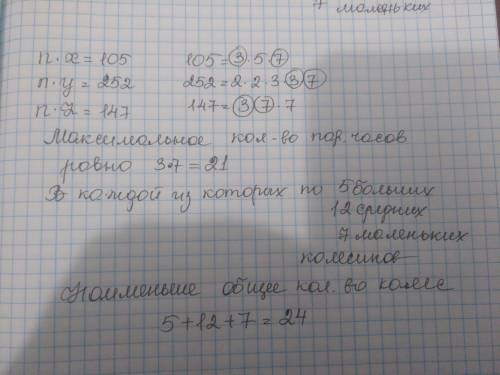 7 маленьких
n · x = 105 105 = 3 · 5 · 7
n · y = 252 252 = 2 · 2 · 3 · 3 · 7
n · z = 147 147 = 3 · 7 · 7
Максимальное кол-во пар. часов
равно 3·7 = 21
В каждой из которых по 5 больших
12 средних
7 маленьких
колесиков
Наименьшее общее кол. во колес
5 + 12 + 7 = 24